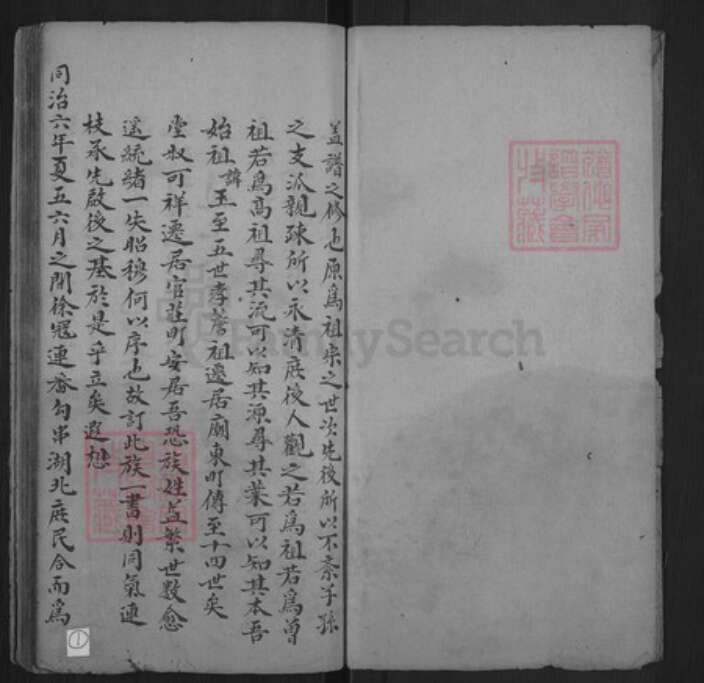 蓋譜之修也原為祖宗之世次先後所以不紊子孫
之支派親疎所以永清庶後人觀之若為祖若為曾
祖若為高祖尋其流可以知其源尋其葉可以知其本吾
始祖諱玉至五世孝蒼祖遷居廟東町傳至十四世矣
堂叔可祥遷居官莊町安居吾恐族姓益繁世數愈
遠統緒一失昭穆何以序也故訂此族一書則同氣連
枝承先啟後之基於是乎立矣遐想
同治六年夏五六月之間徐冠連番勾串湖北庶民合而為
①
FamilySearch